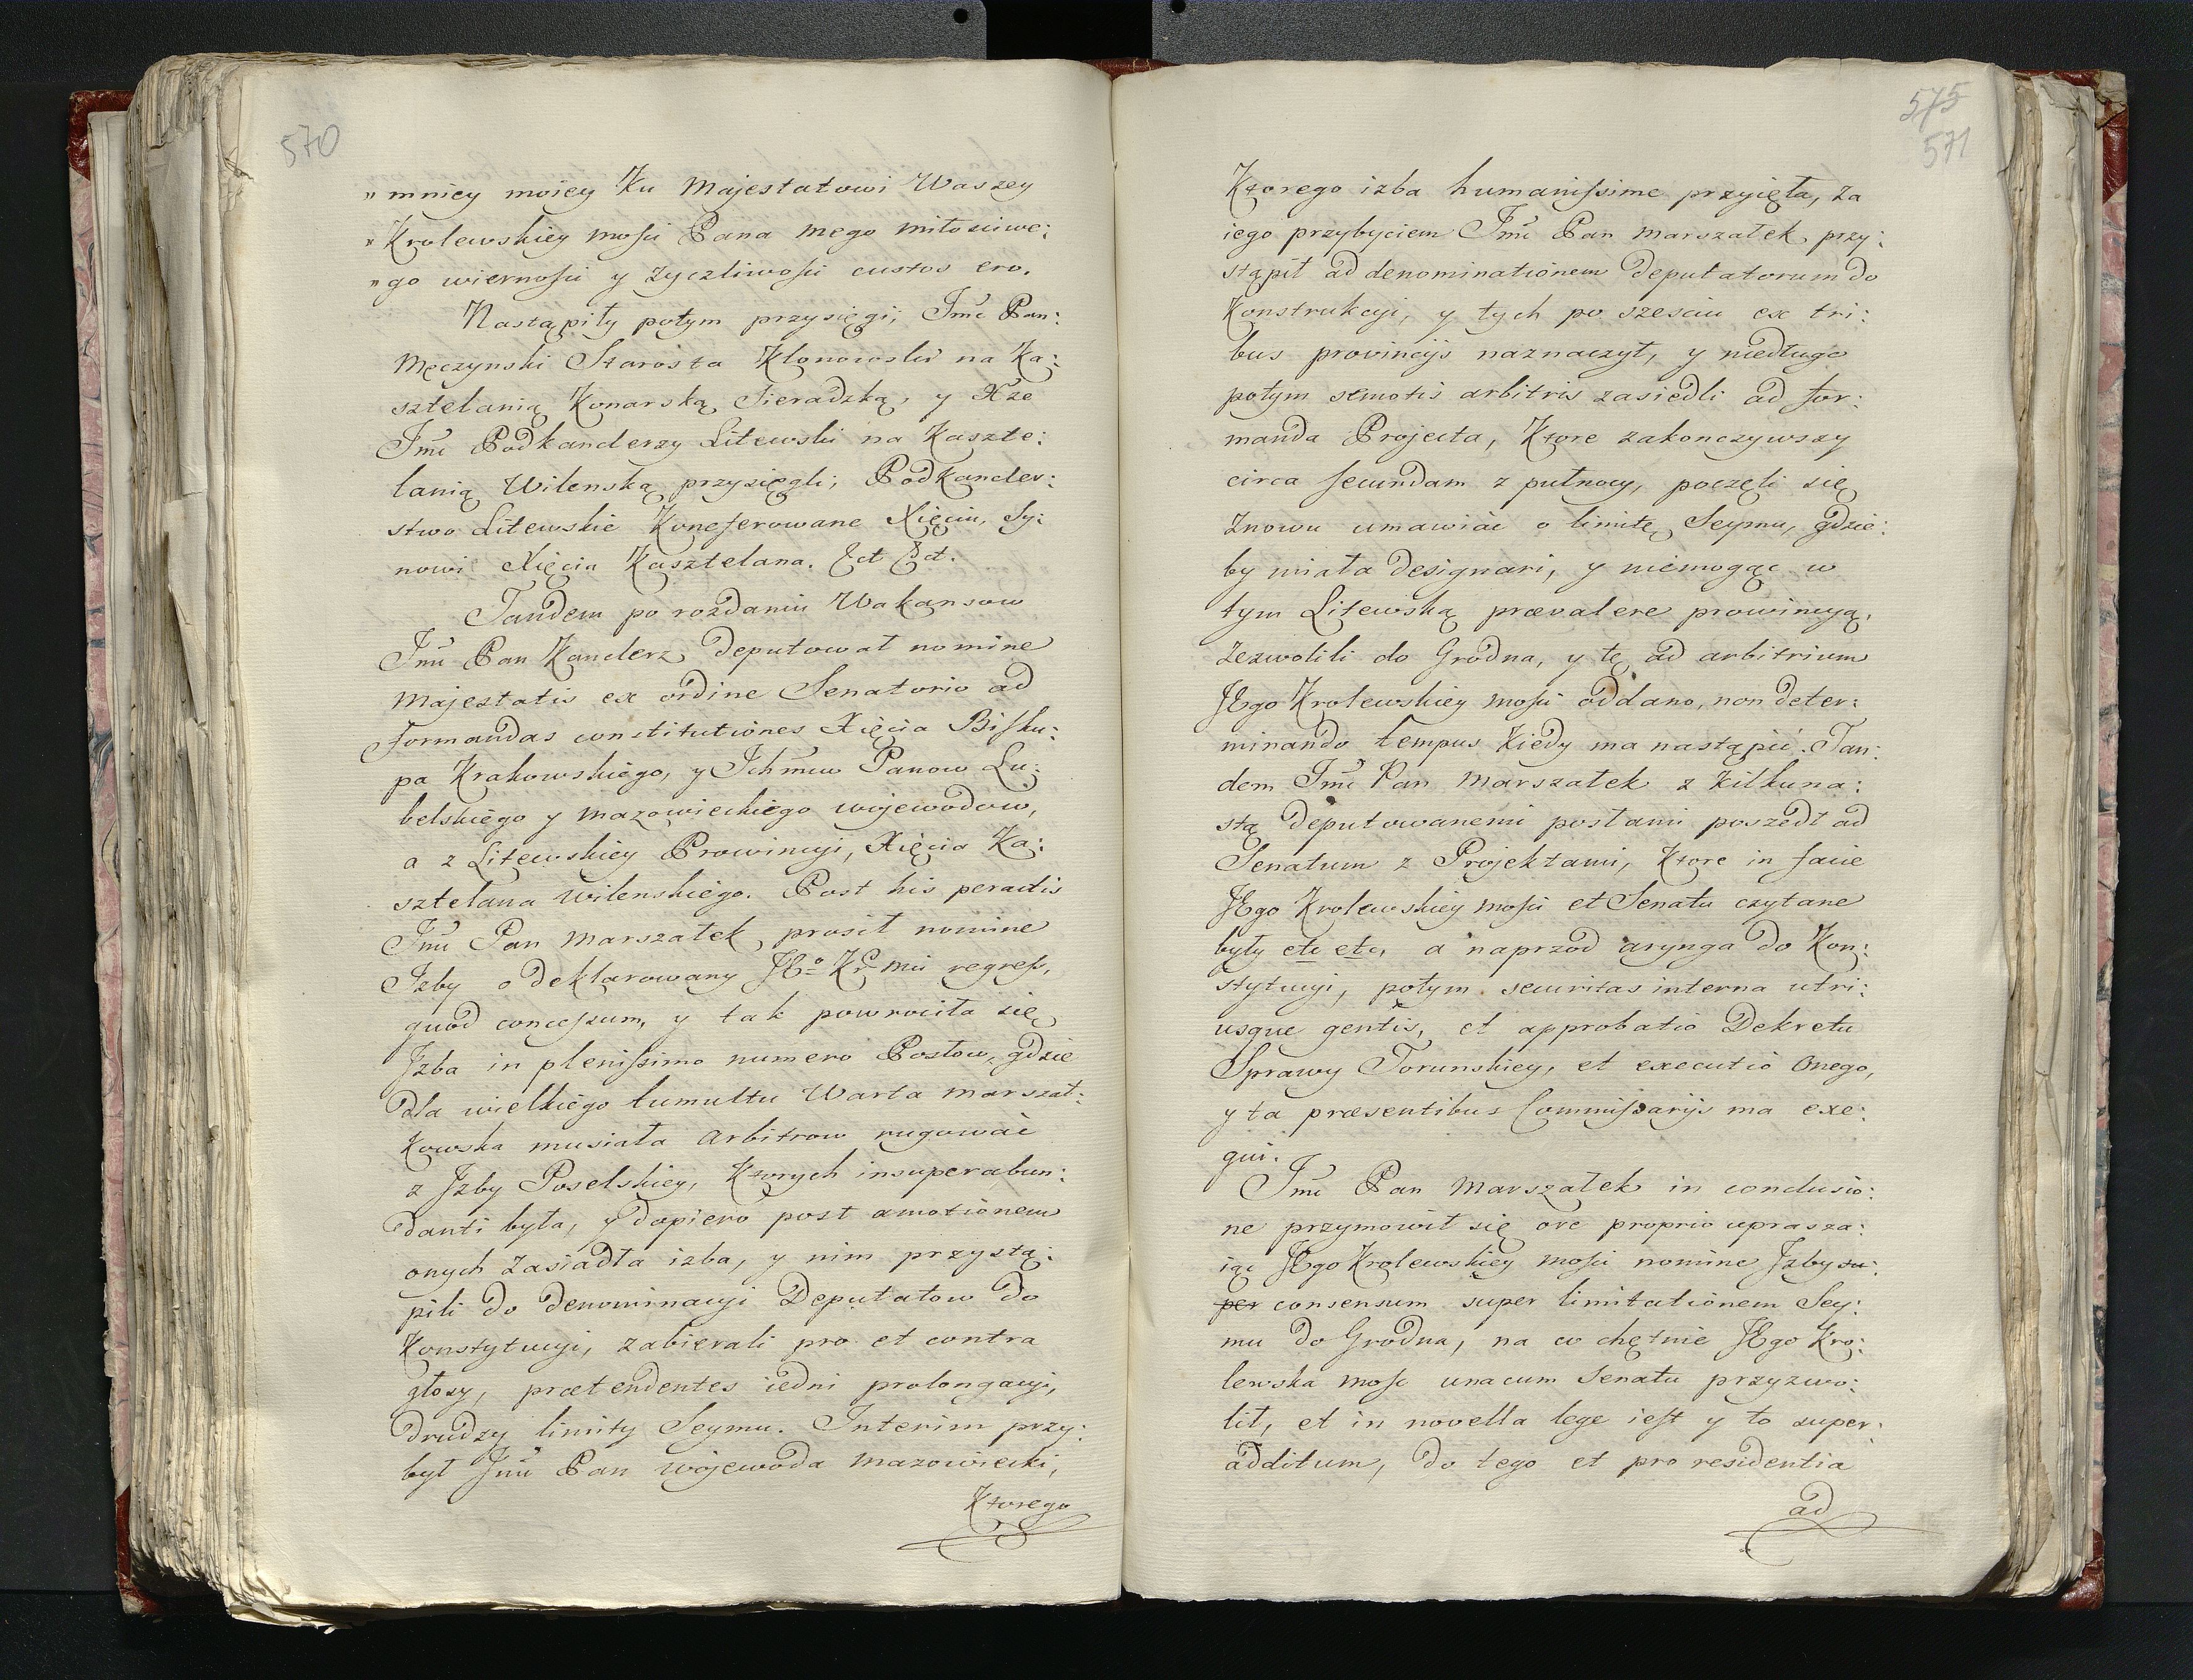 570
" mnicy moiey Ku Majestatowi Waszey
" Krolewskiey mości Pana mego miłosciwe:
" go wierności y życzliwości custos ero.
Nastąpiły potym przysięgi; Jmć Pan:
Męczynski Starosta Klonowski na Ka:
sztelanią Konarską Sieradzką, y Xże
Jmć Podkanclerzy Litewski na Kaszte:
lanią Wilenską przysięgli; Podkancler:
stwo Litewskie Konferowane Xięciu, Sy:
nowi Xięcia Kasztelana. Ect Ect.
Tandem po rozdaniu Wakansow
Jmć Pan Kanclerz deputował nomine
Majestatis ex ordine Senatorio ad
formandas constitutiones Xięcia Bisku:
pa Krakowskiego, y Ichmćw Panow Lu:
belskiego y mazowieckiego wojewodow,
a z Litewskiey Prowincyi, Xięcia Ka:
sztelana wilenskiego. Post his peractis
Jmć Pan Marszałek, prosił nomine
Izby o deklarowany JEº Kr mci regress,
quod concessum, y tak powrociła się
Izba in plenissimo numero Posłow, gdzie
dla wielkiego tumultu Warta marszał:
kowska musiała Arbitrow rugować
z Izby Poselskiey, Ktorych insuperabun:
danti była, y dopiero post amotionem
onych zasiadła izba, y nim przystą:
pili do denominacyi Deputatow do
Konstytucyi, zabierali pro et contra
głosy, prætendentes iedni prolongacyi,
drudzy limity Seymu. Interim przy:
był Jmć Pan wojewoda mazowiecki,
Ktorego
575
571
Ktorego izba humanissime przyięła, za
iego przybyciem Jmć Pan marszałek przy:
stąpił ad denominationem deputatorum do
Konstrukcyi, y tych po szesciu ex tri:
bus provincijs naznaczył, y niedługo
potym semotis arbitris zasiedli ad for:
manda Projecta, Ktore zakonczywszy
circa secundam z pułnocy, poczęli się
znowu umawiać o limitę Seymu, gdzie:
by miała designari, y niemogąc w
tym Litewską prævalere prowincyą,
zezwolili do Grodna, y tę ad arbitrium
JEgo Krolewskiey mości oddano, non deter:
minando tempus Kiedy ma nastąpić. Tan:
dem Jmć Pan Marszałek z kilkuna:
stą deputowanemi posłami poszedł ad
Senatum z Projektami, Ktore in facie
JEgo Krolewskiey mości et Senatu czytane
były etc etc, a naprzod arynga do Kon:
stytucyi, potym securitas interna utri:
usque gentis, et approbatio Dekretu
Sprawy Torunskiey, et executio Onego,
y ta præsentibus Commissarijs ma exe:
qui.
Jmć Pan Marszałek in conclusio:
ne przymowił się ore proprio uprasza:
iąc JEgo Krolewskiey mości nomine Izby su:
per consensum super limitationem Sey:
mu do Grodna, na co chętnie JEgo Kro:
lewska mość unacum Senatu przyzwo:
lił, et in novella lege iest y to super:
additum, do tego et pro residentia
ad